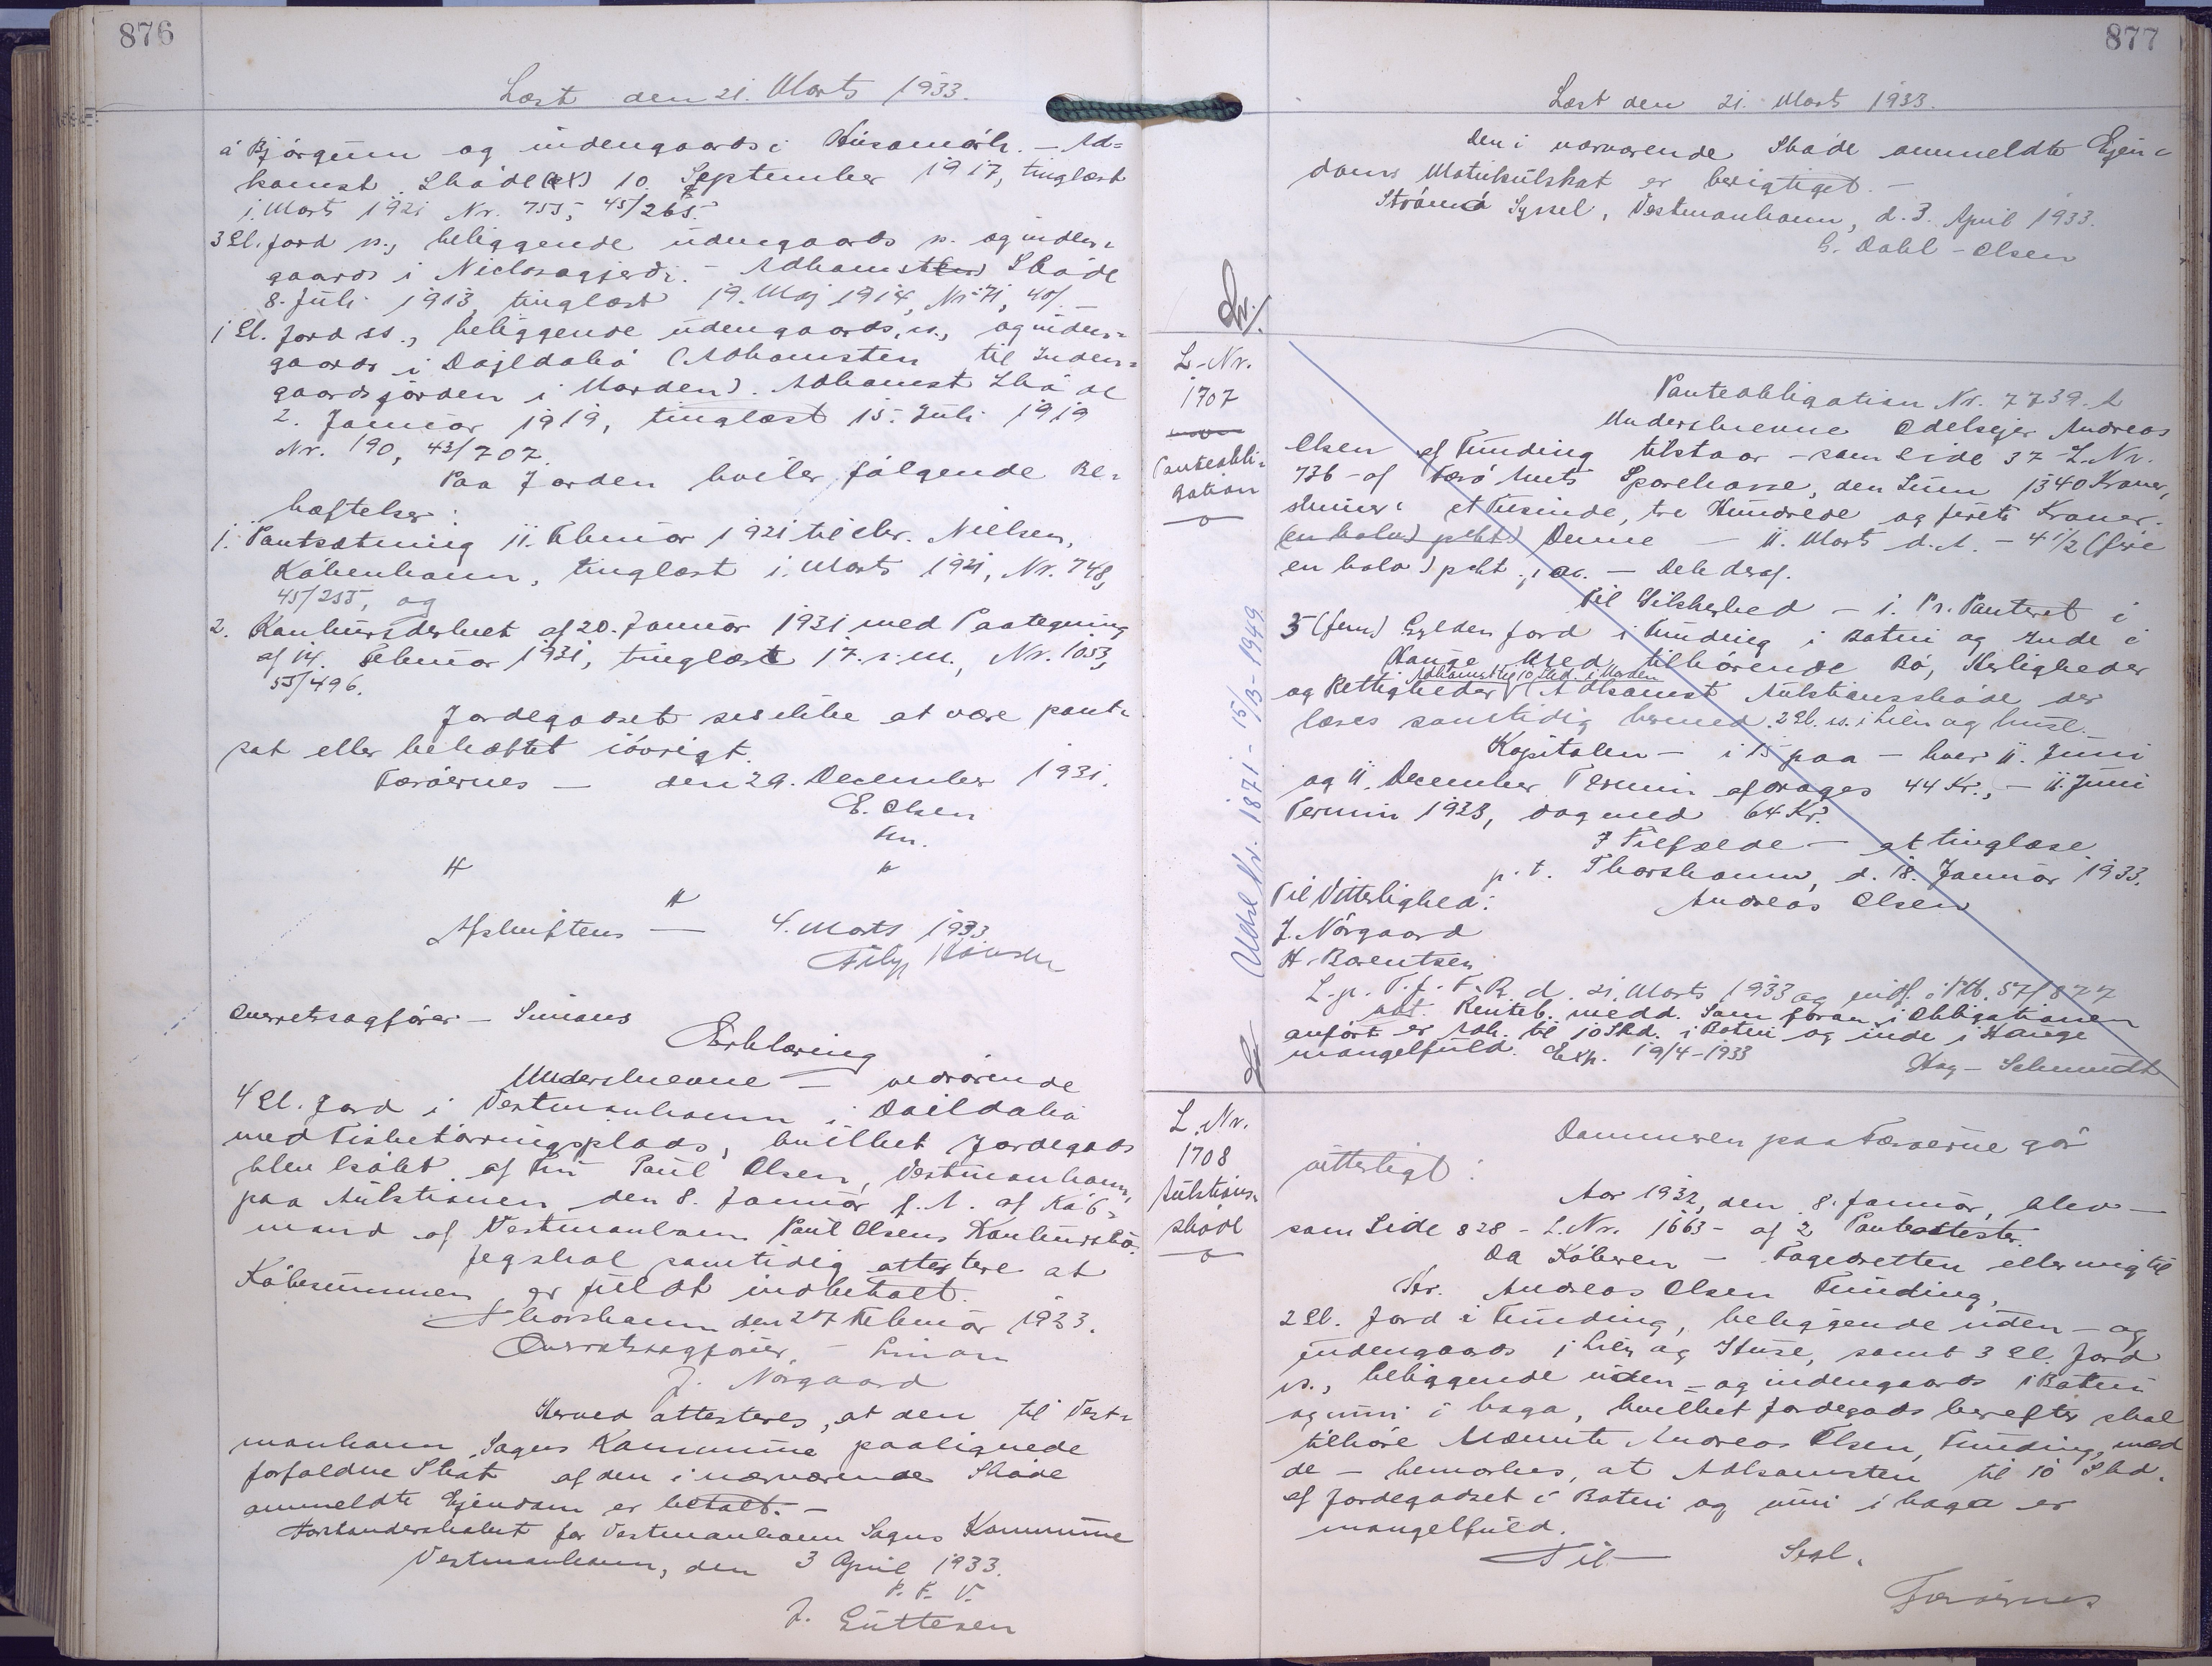 876
Læst den 21. Marts 1933.
á Bjørgum og indengaards i Húsamørk. – Ad=
komst Skøde 10. September 1917, tinglæst
1. Marts 1921 Nr. 755, 45/265.
3 Gl. Jord ss., beliggende udengaards ss. og inden=
gaards i Niclasagjerdi. – Adkomst Skøde
8. Juli 1913, tinglæst 19. Maj 1914, Nr. 71, 40/. –
1 Gl. Jord ss., beliggende udengaards, ss., og inden=
gaards i Dajldaká (Adkomsten til Inden=
gaardsjorden i Marden). Adkomst Skøde
2. Januar 1919, tinglæst 15. Juli 1919
Nr. 190, 43/707.
Paa Jorden hviler følgende Be=
hæftelser:
1. Pantsætning 11. Februar 1921 til Chr. Nielsen,
København, tinglæst 1. Marts 1921, Nr. 748,
45/255, og
2. Konkursdekret af 20. Januar 1931 med Paategning
af 14. Februar 1931, tinglæst 17. s. M., Nr. 1053,
55/496.
Jordegodset ses ikke at være pant=
sat eller behæftet iøvrigt.
Færøernes — den 29. December 1931.
E. Olsen
Afskriftens — 4. Marts 1933
Overretssagfører – Simons
Erklæring
Underskrevne — vedrørende
4 Gl. Jord i Vestmanhavn i Daildaká
med Fisketørringsplads, hvilket Jordegods
blev købt af Fru Paul Olsen, Vestmanhavn,
paa Auktionen den 8. Januar f. A. af Køb=
mand af Vestmanhavn Paul Olsens Konkursbo.
Jeg skal samtidig attestere at
Købesummen er fuldt indbetalt.
Thorshavn den 27 Februar 1933.
Overretssagfører, – Simons
J. Nørgaard
Herved attesteres, at den til Vest=
manhavn Sogns Kommune paalignede
forfaldne Skat af den i nærværende Skøde
ommeldte Ejendom er betalt. –
Forstanderskabet for Vestmanhavn Sogns Kommune
Vestmanhavn, den 3 April 1933.
P. F. V.
J. Guttesen
877
Læst den 21. Marts 1933.
Den i nærværende Skøde ommeldte Ejen=
doms Matrikulskat er berigtiget. –
Strømø Syssel, Vestmanhavn, d. 3. April 1933.
G. Dahl-Olsen
L.-Nr.
1707
Panteobli=
gation
Panteobligation Nr. 7739. A
Underskrevne Odelsejer Andreas
Olsen af Funding tilstaar – som Side 37 L.Nr.
736 – af Færø Amts Sparekasse, den Sum 1340 Kroner,
skriver: et Tusinde, tre Hundrede og fyrete Kroner.
(en halv) pCkt) Denne — 11. Marts d. A. – 4 1/2 (fire
en halv) pckt., ac. — Dele deraf.
Til Sikkerhed — 1. Pr. Panteret i
5 (fem) Gylden Jord i Funding i Boteni og Inde i
Hauge Med tilhørende Bø, Herligheder
Adkomst til 10 Skd. i Marden
og Rettigheder (Adkomst Auktionsskøde der
læses samtidig hermed. 2 Gl. ss. i Lien og huse.
Kapitalen — i 15 paa — hver 11. Juni
og 11. December Termin afdrages 44 Kr., – 11. Juni
Termin 1933, dog med 64 Kr.
I Tilfælde — at tinglæse
p. t. Thorshavn, d. 18. Januar 1933.
Til Vitterlighed: Andreas Olsen
J. Nørgaard
H. Berentsen
L. p. T. f. F. R. d. 21. Marts 1933 og indf. i Ptb. 57/877
udt. Renteb. medd. Som foran i Obligationen
anført er Adk. til 10 Skd. i Boteni og inde i Hauge
mangelfuld. Exp. 19/4-1933
Hag-Schmidt
Udsl. Nr. 1871 - 15/3-1949
L. Nr.
1708
Auktions=
skøde
Dommeren paa Færøerne gør
vitterligt:
Aar 1932, den 8. Januar, blev —
som Side 828 – L.Nr. 1663 – af 2 Panteattester.
Da Køberen — Fogedretten eller mig til
Hr. Andreas Olsen Funding,
2 Gl. Jord i Funding, beliggende uden- og
indengaards i Lien og Huse, samt 3 Gl. Jord
ss., beliggende uden- og indengaards i Boteni
og inni i haga, hvilket Jordegods herefter skal
tilhøre Nævnte Andreas Olsen, Funding, med
de — bemærkes, at Adkomsten til 10 Skd.
af Jordegodset i Boteni og inni i haga er
mangelfuld.
Til — Segl.
Færøernes